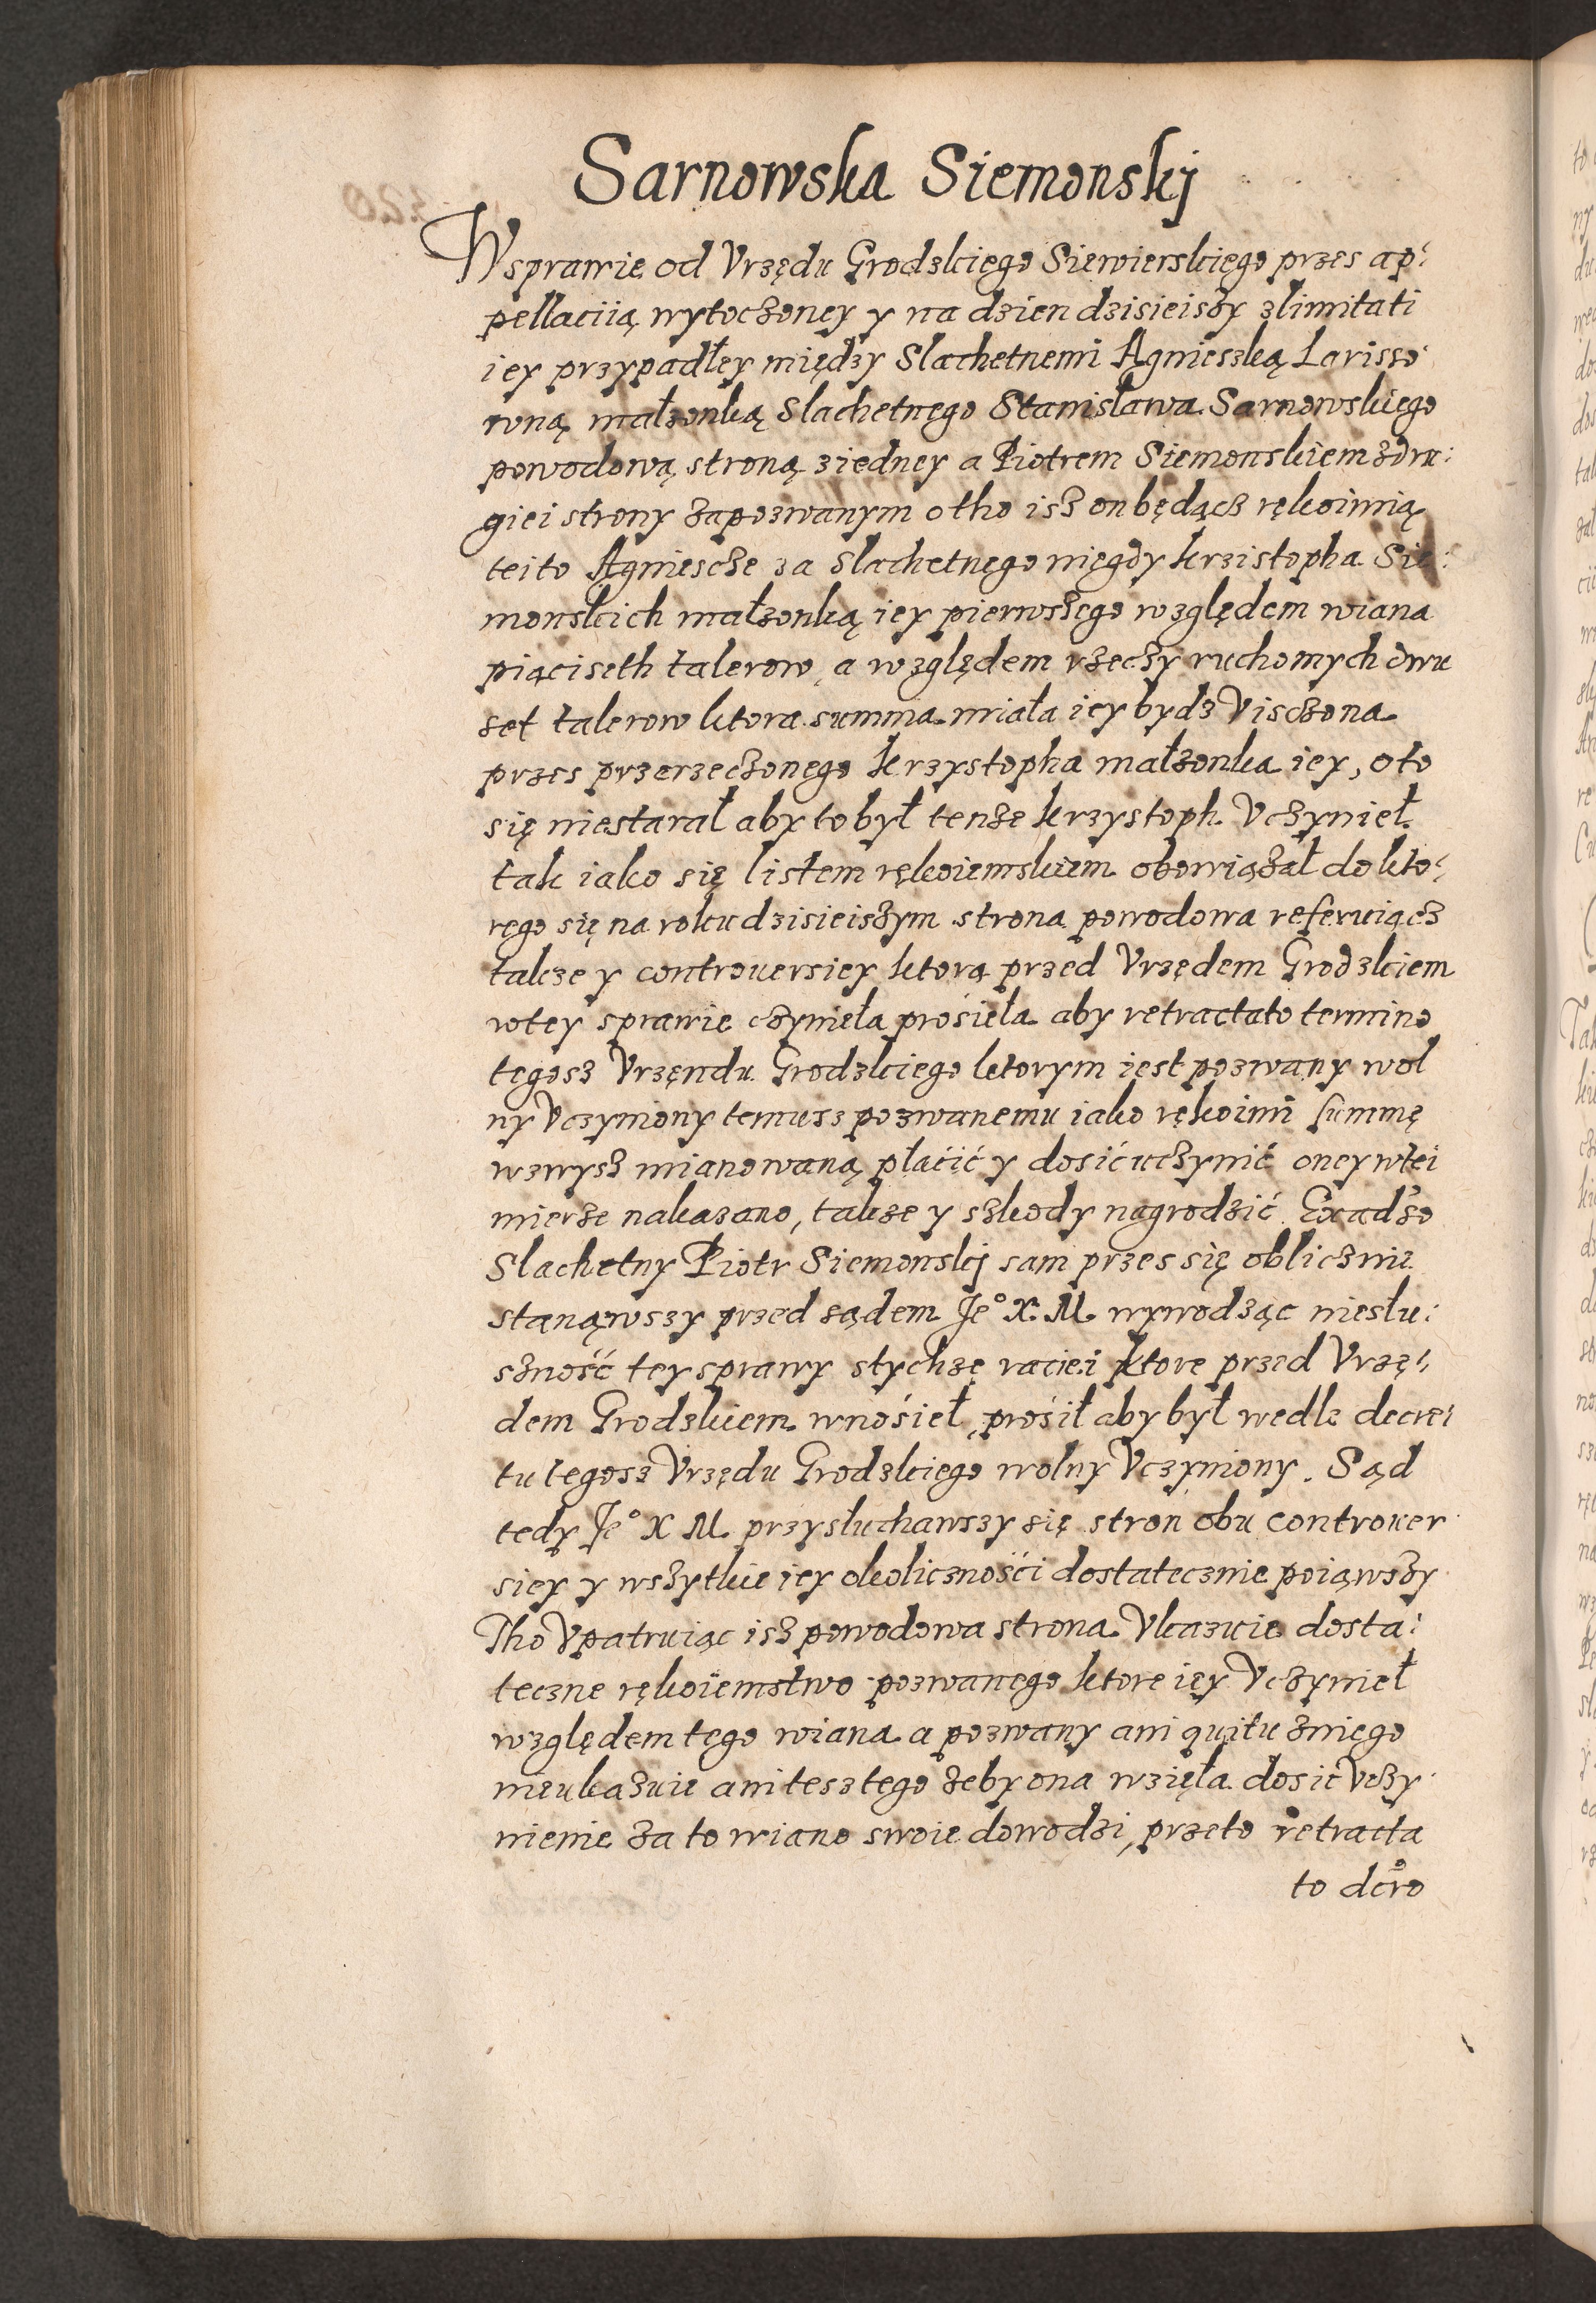 Sarnowska Siemonskj
W sprawie od Vrzędu Grodzkiego Siewierskiego przes ap:
pellaciią wytoczoney y na dzien dzisieiszy z limitati
iey przypadłey między Slachetnemi Agnieszką Larisso
wną małzonką Slachetnego Stanisława Sarnowskiego
powodową stroną z iedney a Piotrem Siemonskiem z dru:
giei strony zapozwanym o tho isz on będącz rękoimią
tei to Agniescze za Slachetnego niegdy Krzistopha Sie:
monskich małzonką iey pierwszego względem wiana
piąciseth talerow, a względem rzeczy ruchomych dwu
set talerow ktora summa miała iey bydz Visczona
przes przerzeczonego Krzystopha małzonka iey, o to
się niestarał aby to był tenze Krzystoph Vczynieł
tak iako się listem rękoiemskiem obowiązał do kto:
rego się na roku dzisieiszym strona powodowa referuiącz
takze y controuersiey ktorą przed Vrzędem Grodzkiem
w tey sprawie czynieła prosieła aby retractato termino
tegosz Vrzęndu Grodzkiego ktorym iest pozwany wol
ny Vczyniony temusz pozwanemu iako rękoimi summę
wzwysz mianowaną płaćić y dosić uczynić oney w tei
mierze nakazano, takze y szkody nagrodzić. Exad૩o
Slachetny Piotr Siemonskj sam przes się oblicznie
stanąwszy przed sądem Je° X. M. wywodząc niesłu:
szność tey sprawy s tych ze raciei ktore przed Vrzę:
dem Grodzkiem wnosieł, prosił aby był wedle decre:
tu tegosz Vrzędu Grodzkiego wolny Vczyniony. Sąd
tedy Je° X M. przysłuchawszy się stron obu controuer
siey y wszytkie iey okolicznośći dostatecznie poiąwszy
Tho Vpatruiąc isz powodowa strona Vkazuie dosta:
teczne rękoiemstwo pozwanego ktore iey Vczynieł
względem tego wiana a pozwany ani quitu z niego
nieukazuie ani tesz tego zeby ona wzięła dosic Vczy
nienie za to wiano swoie dowodzi, przeto retracta
to dcro